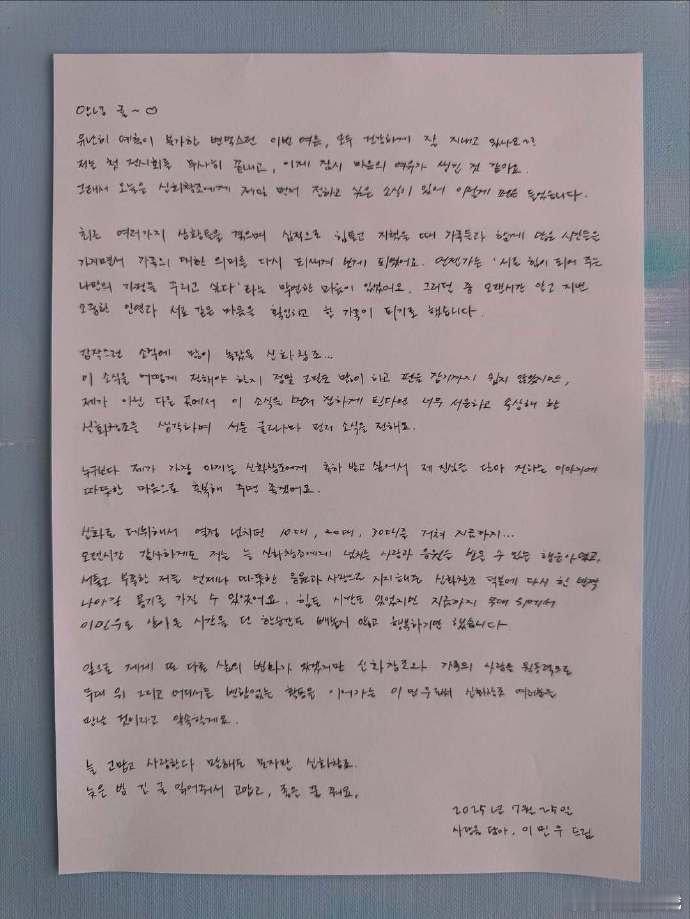 안녕 귤~♡
유난히 예측이 불가한 변덕스런 이번 여름, 모두 건강하게 잘 지내고 있나요~?
저는 첫 전시회를 무사히 끝내고, 이제 잠시 마음의 여유가 생긴 것 같아요.
그래서 오늘은 신화창조에게 제일 먼저 전하고 싶은 소식이 있어 이렇게 펜을 들었습니다.
최근 여러가지 상황들을 겪으며 심적으로 힘들고 지쳤을 때 가족들과 함께 많은 시간들을
가지면서 가족의 대한 의미를 다시 되새겨 보게 되었어요. 언젠가는 '서로 힘이 되어 주는
나만의 가정을 꾸리고 싶다'라는 막연한 마음이 있었어요. 그러던 중 오랜시간 알고 지낸
소중한 인연과 서로 같은 마음을 확인하고 한 가족이 되기로 했습니다.
갑작스런 소식에 많이 놀랐을 신화창조...
이 소식을 어떻게 전해야 할지 정말 고민도 많이 하고 펜을 잡기까지 쉽지 않았지만,
제가 아닌 다른 곳에서 이 소식을 먼저 접하게 된다면 너무 서운하고 속상해 할
신화창조를 생각하며 서툰 글로나마 먼저 소식을 전해요.
누구보다 제가 가장 아끼는 신화창조에게 축하 받고 싶어서 제 진심을 담아 전하는 이야기에
따뜻한 마음으로 축복해 주면 좋겠어요.
신화로 데뷔해서 열정 넘치던 10대, 20대, 30대를 거쳐 지금까지...
오랜시간 감사하게도 저는 늘 신화창조에게 넘치는 사랑과 응원을 받을 수 있는 행운아였고,
서툴고 부족한 저를 언제나 따뜻한 응원과 사랑으로 지지해준 신화창조 덕분에 다시 한 번 더
나아갈 용기를 가질 수 있었어요. 힘든 시간도 있었지만 지금까지 무대 위에서
이민우로 살아온 시간을 단 한순간도 빼놓지 않고 행복하기만 했습니다
앞으로 제게 또 다른 삶의 변화가 있겠지만 신화창조와 가족의 사랑을 원동력으로
무대 위 그리고 어디서든 변함없는 활동을 이어가는 이민우로써 신화창조 여러분을
만날 것이라고 약속할게요.
늘 고맙고 사랑한다 말해도 모자란 신화창조.
늦은 밤 긴 글 읽어줘서 고맙고, 좋은 꿈 꿔요.
2025년 7월 25일
사랑을 담아, 이민우 드림